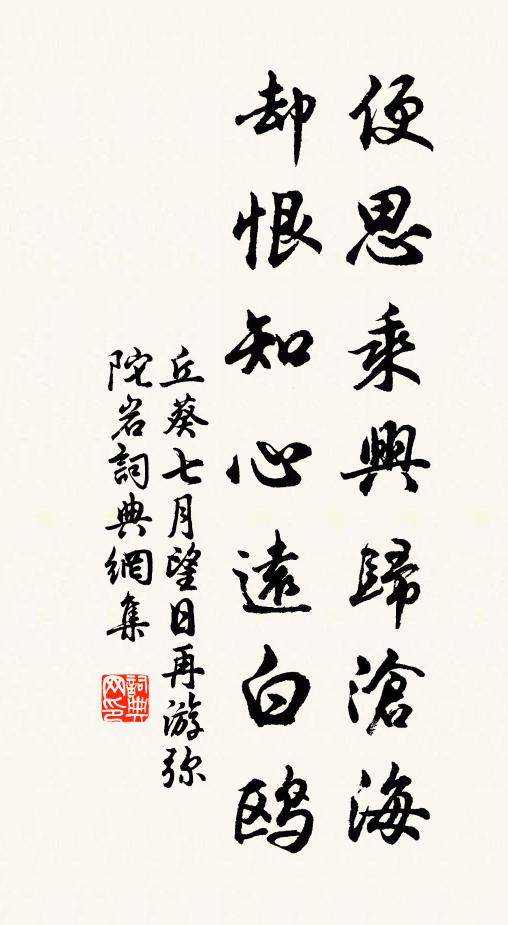 便思乘興歸滄海
却恨知心遠白鸥
丘葵七月望日再游弥
陀岩詞典網集
詞典网印